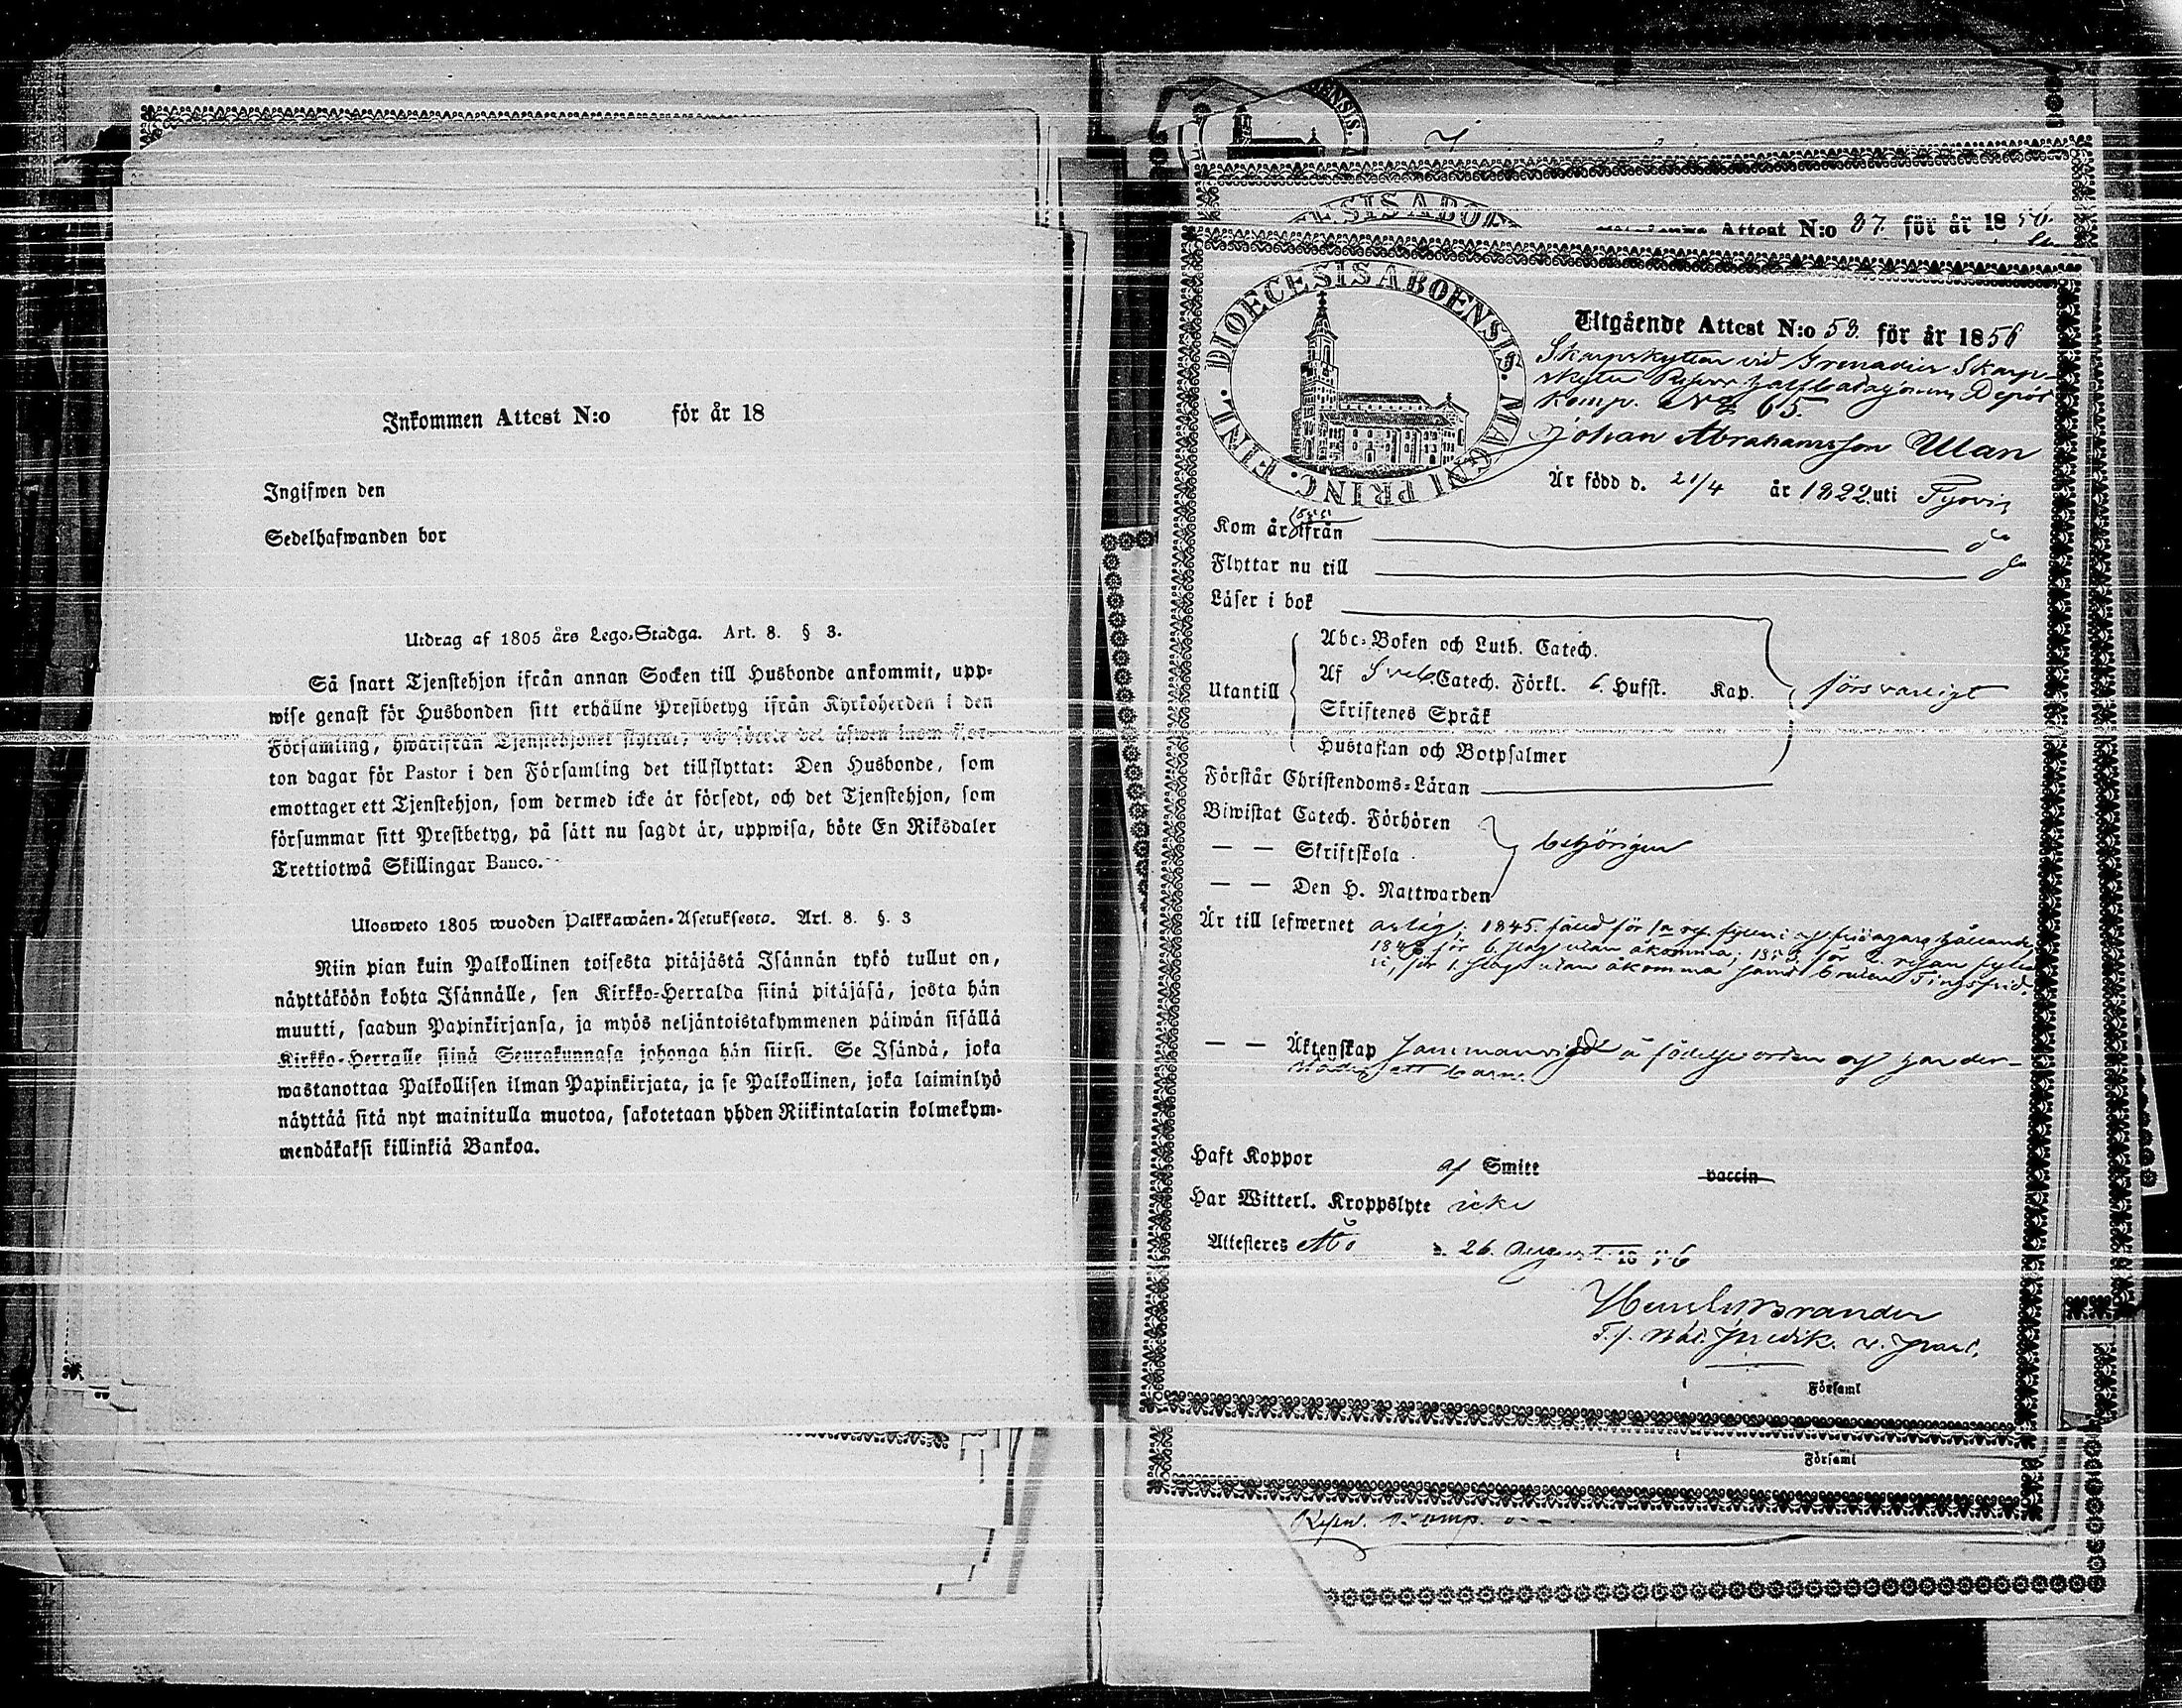 Inkommen Attest N:o för år 18
Ingifwen den
Sedelhafwanden bor
Utdrag af 1805 års Lego-Stadga. Art. 8. § 3.
Så snart Tjenstehjon ifrån annan Socken till Husbonde ankommit, upp-
wise genast för Husbonden sitt erhållne Prestbetyg ifrån Kyrkoherden i den
Församling, hwarifrån Tjenstehjonet flyttat, och förete det äfwen inom fjor-
ton dagar för Pastor i den Församling det tillflyttat: Den Husbonde, som
emottager ett Tjenstehjon, som dermed icke är försedt, och det Tjenstehjon, som
försummar sitt Prestbetyg, på sätt nu sagdt är, uppwisa, böte En Riksdaler
Trettiotwå Skillingar Banco.
Ulosweto 1805 wuoden Palkkawäen-Asetuksesta. Art. 8. §. 3
Niin pian kuin Palkollinen toisesta pitäjästä Isännän tykö tullut on,
näyttäköön kohta Isännälle, sen Kirkko-Herralda siinä pitäjäsä, josta hän
muutti, saadun Papinkirjansa, ja myös neljäntoistakymmenen päiwän sisällä
Kirkko-Herralle siinä Seurakunnasa johonga hän siirsi. Se Isändä, joka
wastanottaa Palkollisen ilman Papinkirjata, ja se Palkollinen, joka laiminlyö
näyttää sitä nyt mainitulla muotoa, sakotetaan yhden Riikintalarin kolmekym-
mendäkaksi killinkiä Bankoa.
ENSIS.
ESIS ABOEN
Attest N:o 37. för år 1856
DIOECESIS ABOENSIS. MAGNI PRINC. FINL.
Utgående Attest N:o 53. för år 1856
Skarpskytten vid Grenadier Skarp-
skytte Reserv halfbataljonens Depôt
Komp. No 65.
Johan Abrahamsson Ulan
Är född d. 21/4 år 1822 uti
Kom år ifrån
Flyttar nu till
Läser i bok
Utantill
Abc-Boken och Luth. Catech.
Af Sveb. Catech. Förkl. 6. Hufst. Kap.
försvarligt
Skriftenes Språk
Hustaflan och Botpsalmer
Förstår Christendoms-Läran
Biwistat Catech. Förhören
— — Skriftskola
behörigen
— — Den H. Nattwarden
Är till lefwernet 1845. för
utan åkomma; för
för 1. slag utan åkomma samt Tingsfrid.
— — Äktenskap Sammanvigd å födelseorten och har der-
städes ett barn.
Haft Koppor af Smitt vaccin
Har Witterl. Kroppslyte icke
Attesteras Åbo d. 26. August 1856
Brander
Församl
Församl